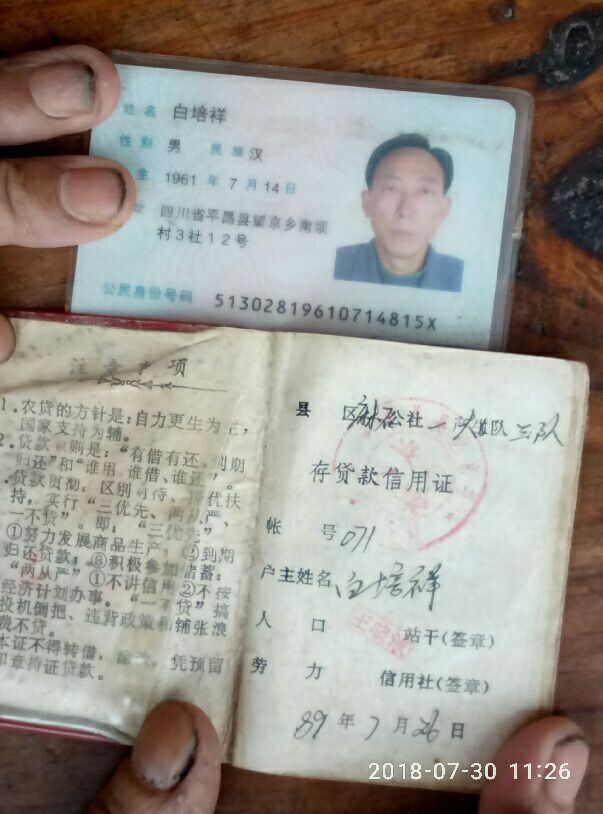 姓名 白培祥
性别 男 民族 汉
生 1961 年 7 月 14 日
址 四川省平昌县望京乡南坝
村3社12号
公民身份号码 51302819610714815X
注意事项
1．农贷的方针是：自力更生为主，
国家支持为辅。
2．贷款原则是：“有借有还、到期
归还”和“谁用、谁借、谁还”。
贷款贯彻：区别对待、择优扶
持，实行“三优先、两从严、
一不贷”。即：“三优先”
①努力发展商品生产 ②到期
归还贷款；③积极参加储蓄；
“两从严”①不讲信用 ②不按
经济计划办事。“一不贷”搞
投机倒把、违背政策和铺张浪
费不贷。
本证不得转借、凭预留
印章持证贷款。
县 区 公社 队 三队
存贷款信用证
帐号 071
户主姓名 白培祥
人口 站干(签章)
劳力 信用社(签章)
89 年 7 月 26 日
2018-07-30 11:26